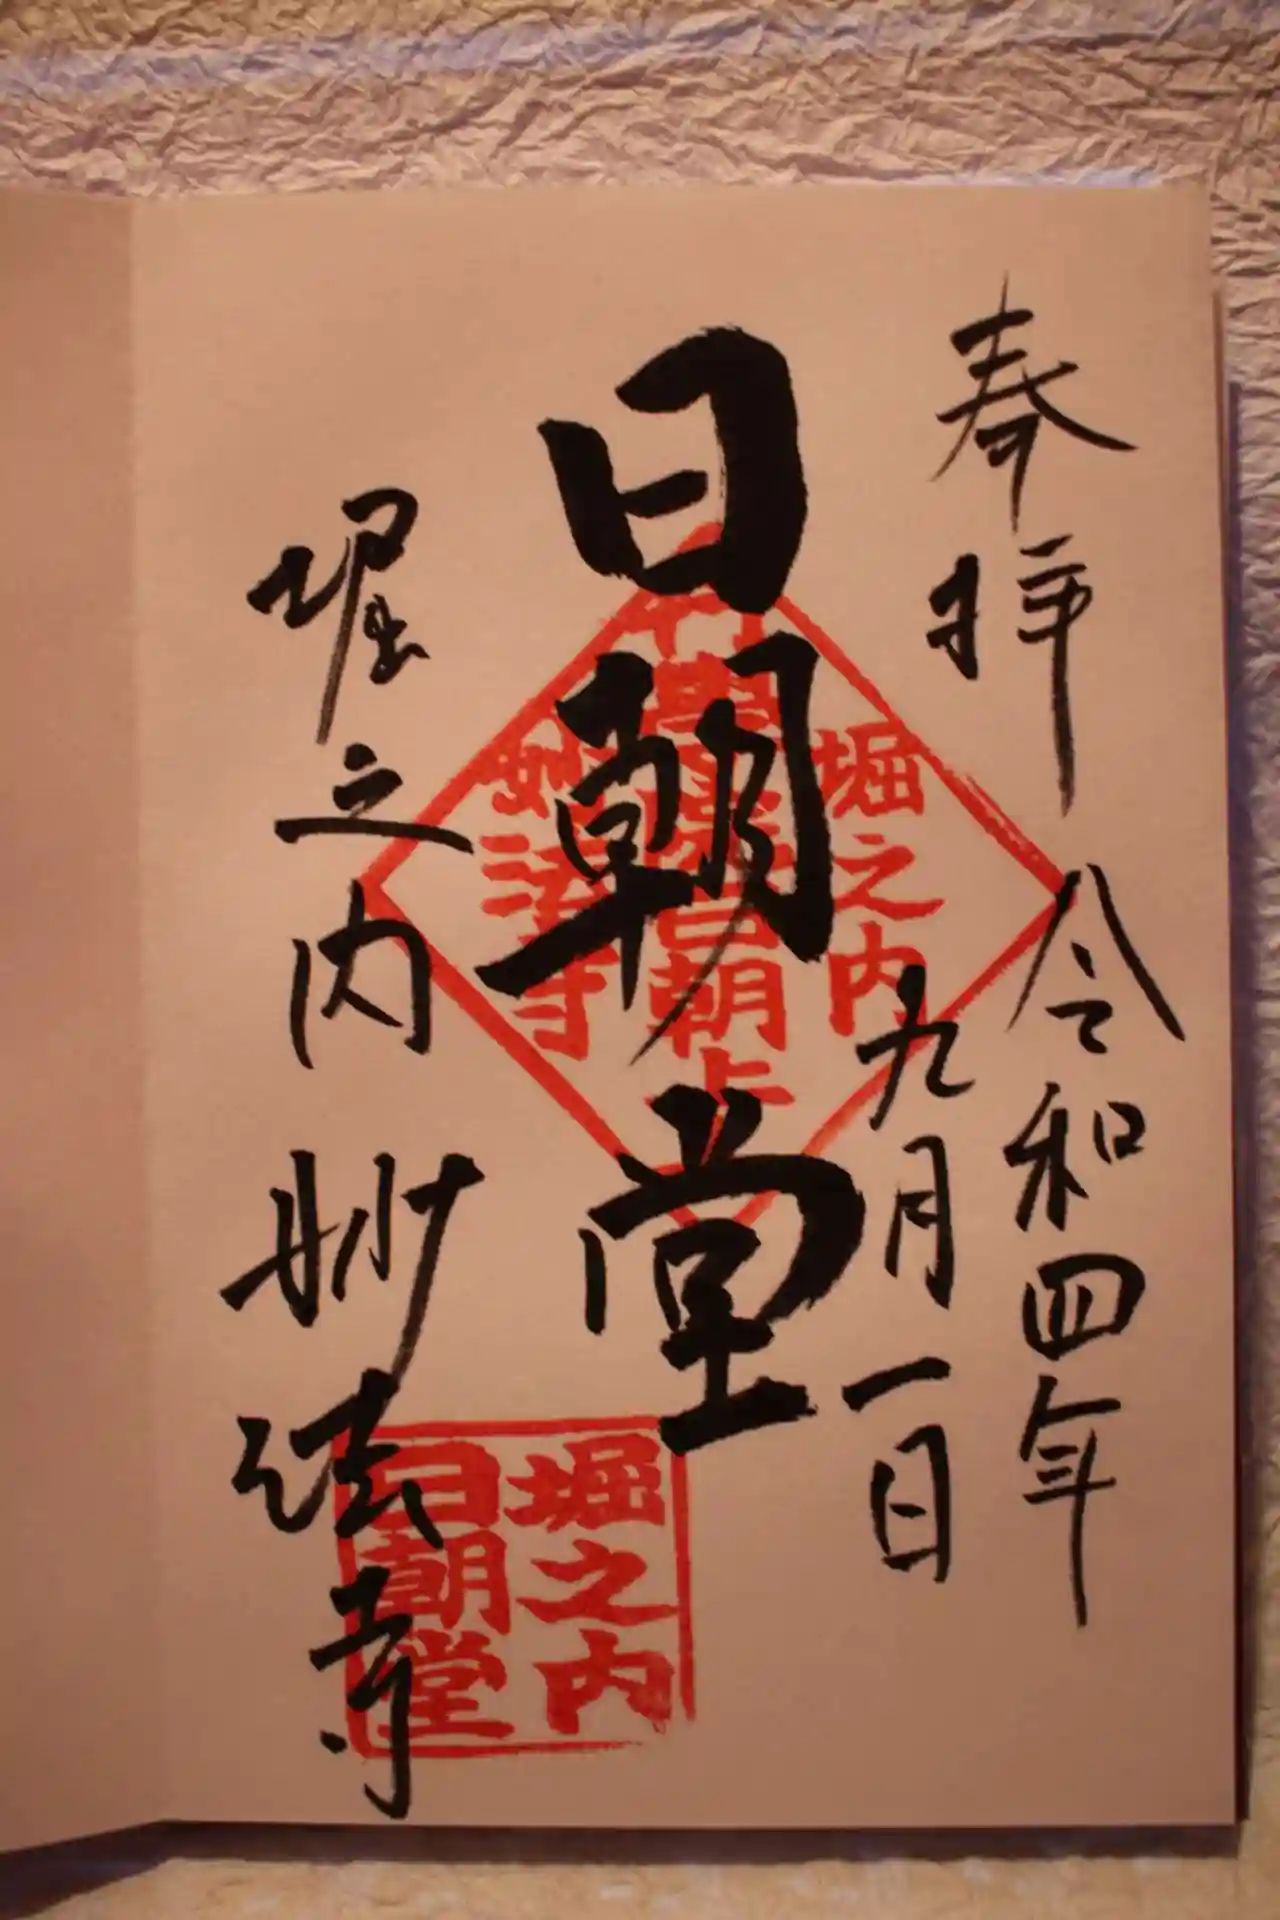 奉拝
令和四年
九月一日
日朝堂
堀之内
妙法寺
堀之内
日朝
妙法寺
堀之内
日朝堂